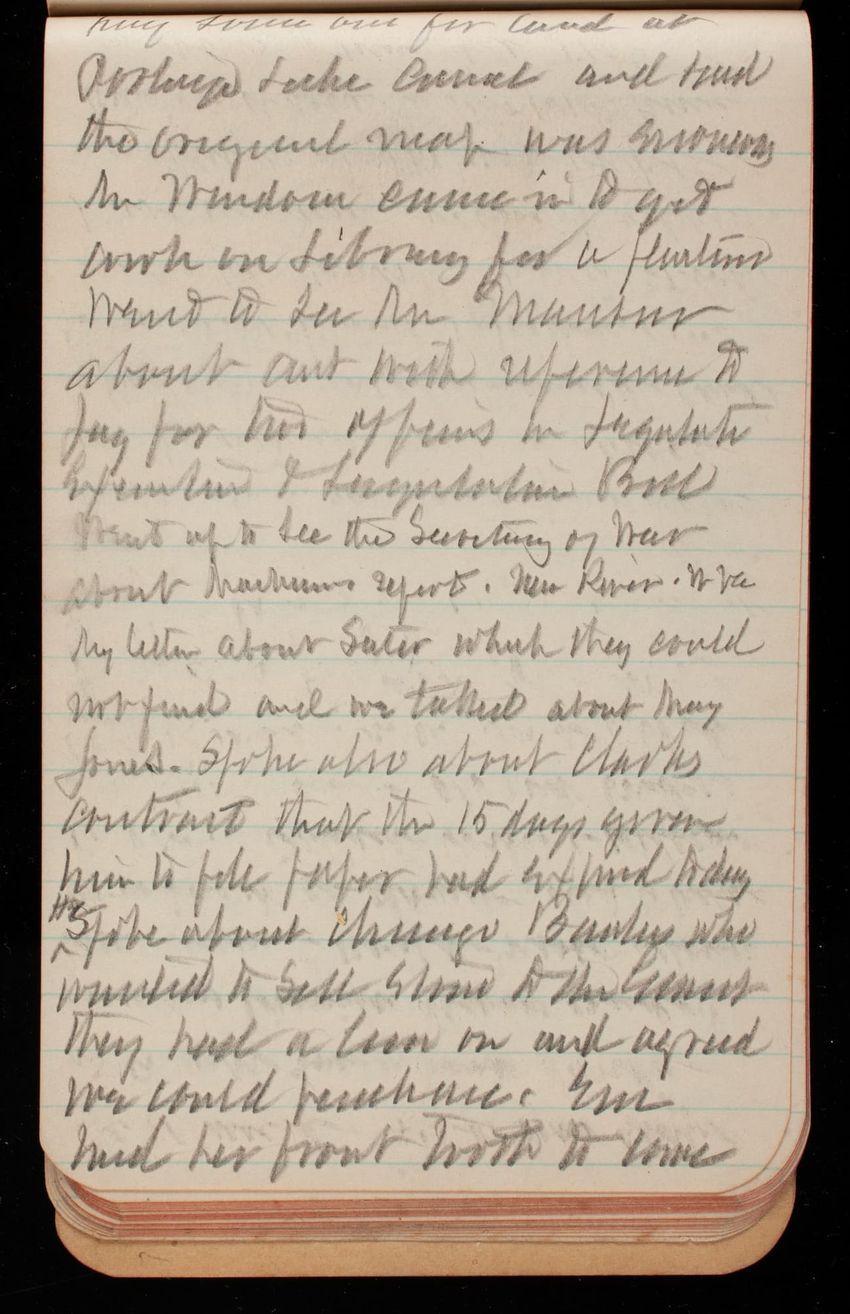 pay some one for land at
Portage Lake Canal and said
the original map was erroneous
Mr Windom came in to get
work on Library for a
Went to see Mr Manson
about act with reference to
pay for two officers in Legislate
Executive & Legislative Bill
Went up to see the Secretary of War
about reports. New River. W Va
My letter about Suter which they could
not find and we talked about May
Jones. Spoke also about Clarks
contract that the 15 days given
him to file paper had expired today
He Spoke about Chicago Banks who
wanted to sell Stone to the Govmt
they had a lien on and agreed
we could purchase. Em
had her front tooth to come